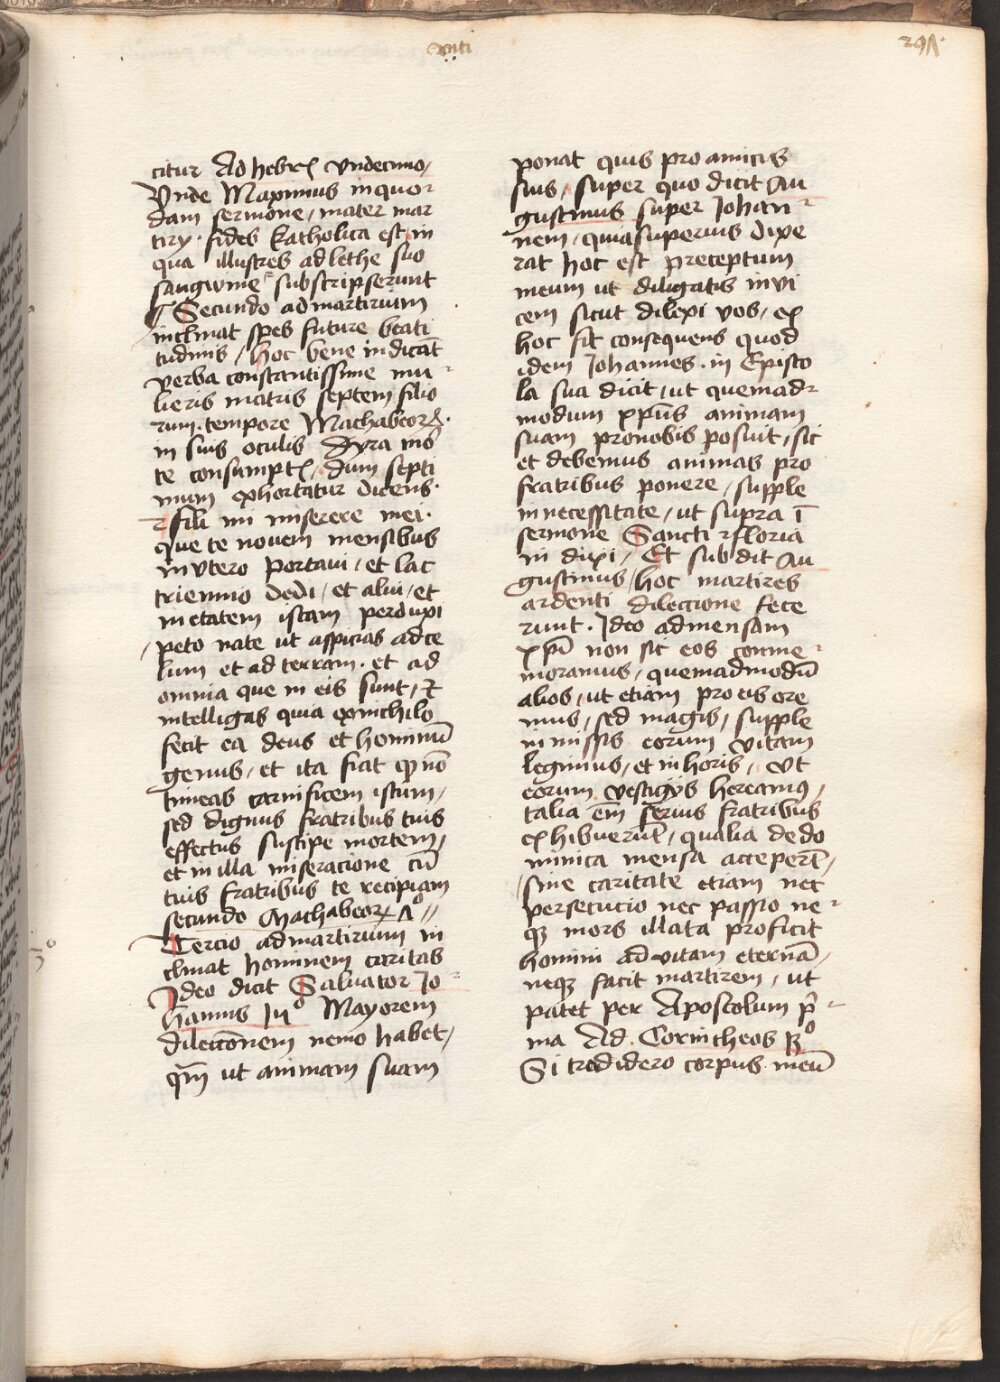 297
citur Ad hebrꝭ vndecimo /
Vnde Maximus in quo⸗
dam sermone / mater mar
tirꝝ · fides katholica est in
qua illustres adlethe suo
sangwine subscripserunt
Secundo ad martirium
inclinat spes future beati
tudinis / hoc bene indicāt
verba constantissime mu⸗
lieris matris septem filio
rum · tempore Machabeorꝝ ·
in suis oculis dyra mor
te consumptꝭ / dum septi
mum exhortatur dicens ·
fili mi miserere mei ·
que te novem mensibus
in vtero portaui / et lac
triennio dedi / et alui / et
in etatem istam perduxi
/ peto nate ut aspicias ad ce
lum et ad terram · et ad
omnia que in eis sunt / et
intelligas quia ex nichilo
fecit ea deus et hominū
genus / et ita fiat qꝫ nō
timeas carnificem istum /
sed dignus fratribus tuis
effectus suscipe mortem /
et in illa miseracione cū
tuis fratribus te recipiam
secundo Machabeorꝝ ʌº //
Tercio ad martirium in
clinat hominem caritas
Ideo dicit Saluator Jo⸗
hannis Jnº Mayorem
dileccōnem nemo habet /
qm̄ ut animam suam
ponat quis pro amicis
suis / super quo dicit Au
gustinus super Johan⸗
nem / quia superius dixe
rat hoc est preceptum
meum ut diligatis invi
cem sicut dilexi vos / ex
hoc fit consequens quod
idem Johannes · in Episto
la sua dicit / ut quemad⸗
modum xpūs animam
suam pro nobis posuit / sic
et debemus animas pro
fratribus ponere / supple
in necessitate / ut supra ī
sermone Sancti floria
ni dixi / Et subdit Au
gustinus / hoc martires
ardenti dileccione fece
runt · Ideo ad mensam
xpī non sic eos comme⸗
moramus / quemadmodū
alios / ut etiam pro eis ore
mus / sed magis / supple
in missis eorum vitam
legimus / et in horis / vt
eorum vestigijs hereamꝰ /
talia em̄ fratribus
exhibuerūt / qualia de do
minica mensa acceperūt /
sine caritate etiam nec
persecucio nec passio ne⸗
qꝫ mors illata proficit
homini ad vitam eternā /
neqꝫ facit martirem / ut
patet per Apostolum p̄⸗
ma Ad · Corintheos 13º
Si tradidero corpus meū